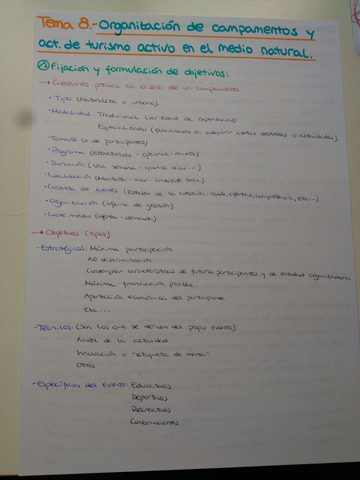 Tema 8.- Organización de campamentos y
act. de turismo activo en el medio natural.
① Fijación y formulación de objetivos:
→ Cuestiones previas al diseño de un campamento
• Tipo (Naturaleza o urbano).
• Modalidades: Tradicional (variedad de experiencias)
Especializado (focalizado en adquirir varias destrezas o actividades).
• Tamaño (n de participantes)
• Programa (estructurado - opcional - mixto).
• Duración (Una semana - quince días ...)
• Localización (Montaña - mar - ambiente rural).
• Consulta de fuentes (Estado de la cuestión: oferta, competencia, etc...)
• Organización (oficina de gestión)
• Coste medio (oferta - demanda).
→ Objetivos: (tipos):
- Estratégicos: Máxima participación
No discriminación
Contemplar características de futuros participantes y de entidad organizadora.
Máxima financiación posible.
Aportación económica del participante.
Etc ...
- Técnicos: (Son los que se derivan del propio evento).
Nivel de la actividad
Innovación o "etiqueta de marca"
Otros.
- Específicos del evento: Educativos
Deportivos
Recreativos
Combinaciones